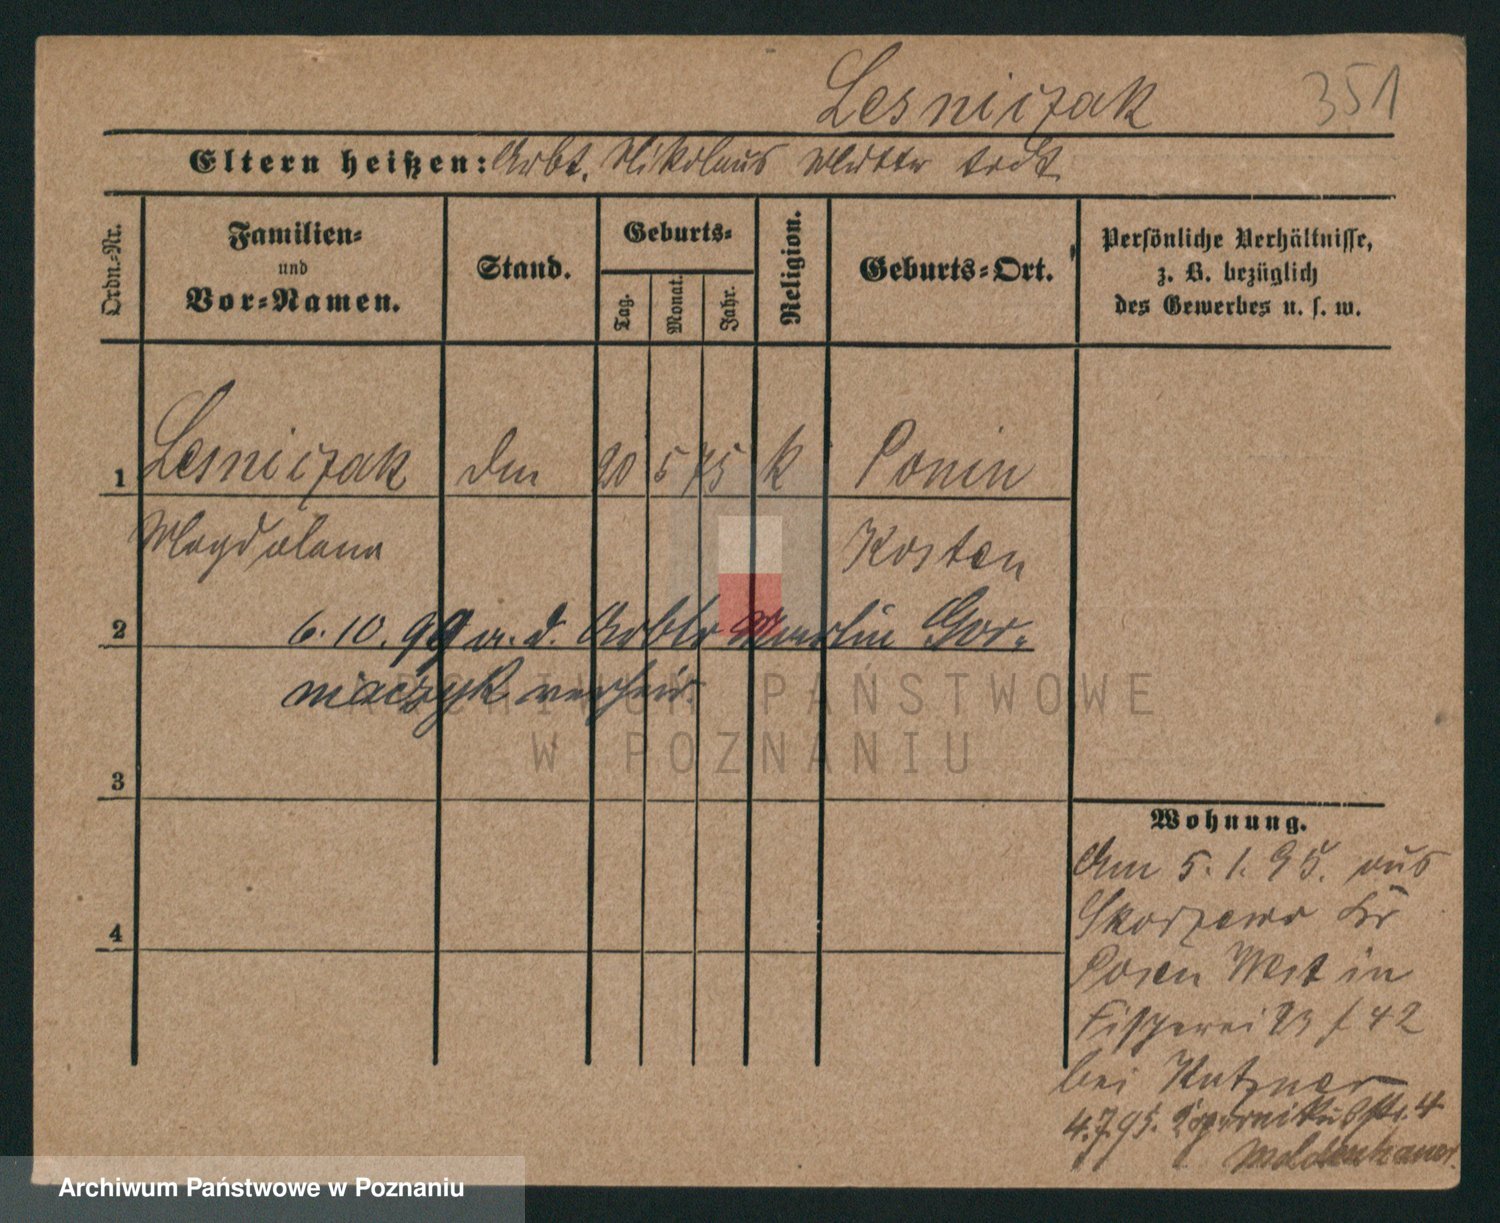 Lesniczak 351
Eltern heißen: Arbt. Nikolaus Mutter todt
Ordn.-Nr.
Familien-
und
Vor-Namen.
Stand.
Geburts-
Tag.
Monat.
Jahr.
Religion.
Geburts-Ort.
Persönliche Verhältnisse,
z. B. bezüglich
des Gewerbes u. s. w.
1 Lesniczak 20 5 75 k Ponin
Magdalena Kosten
2 6. 10. 99 a. d. Arbtr Gor-
maczyk verheir.
3
4
Wohnung.
Am 5. 1. 95. aus
Skorzewo Kr
Posen West in
Fischerei 42
bei Kutzner
4.7.95. Kopernikusstr. 4
Moldenhauer.
ARCHIWUM PAŃSTWOWE
W POZNANIU
Archiwum Państwowe w Poznaniu